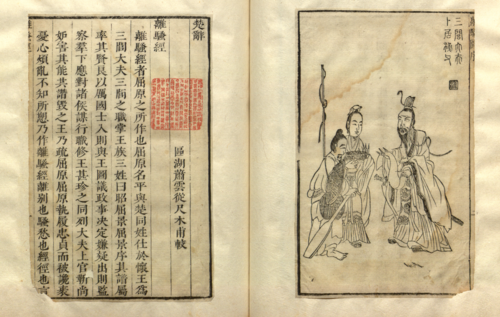 三閭大夫
卜居漁父
楚辭
離騷經
區湖蕭雲從尺木甫較
離騷經者屈原之所作也屈原名平與楚同姓仕於懷王為
三閭大夫三閭之職掌王族三姓曰昭屈景屈原序其譜屬
率其賢良以厲國士入則與王圖議政事決定嫌疑出則監
察群下應對諸侯謀行職修王甚珍之同列大夫上官靳尚
妬害其能共譖毀之王乃疏屈原屈原執履忠貞而被讒衺
憂心煩亂不知所愬乃作離騷經離別也騷愁也經徑也言